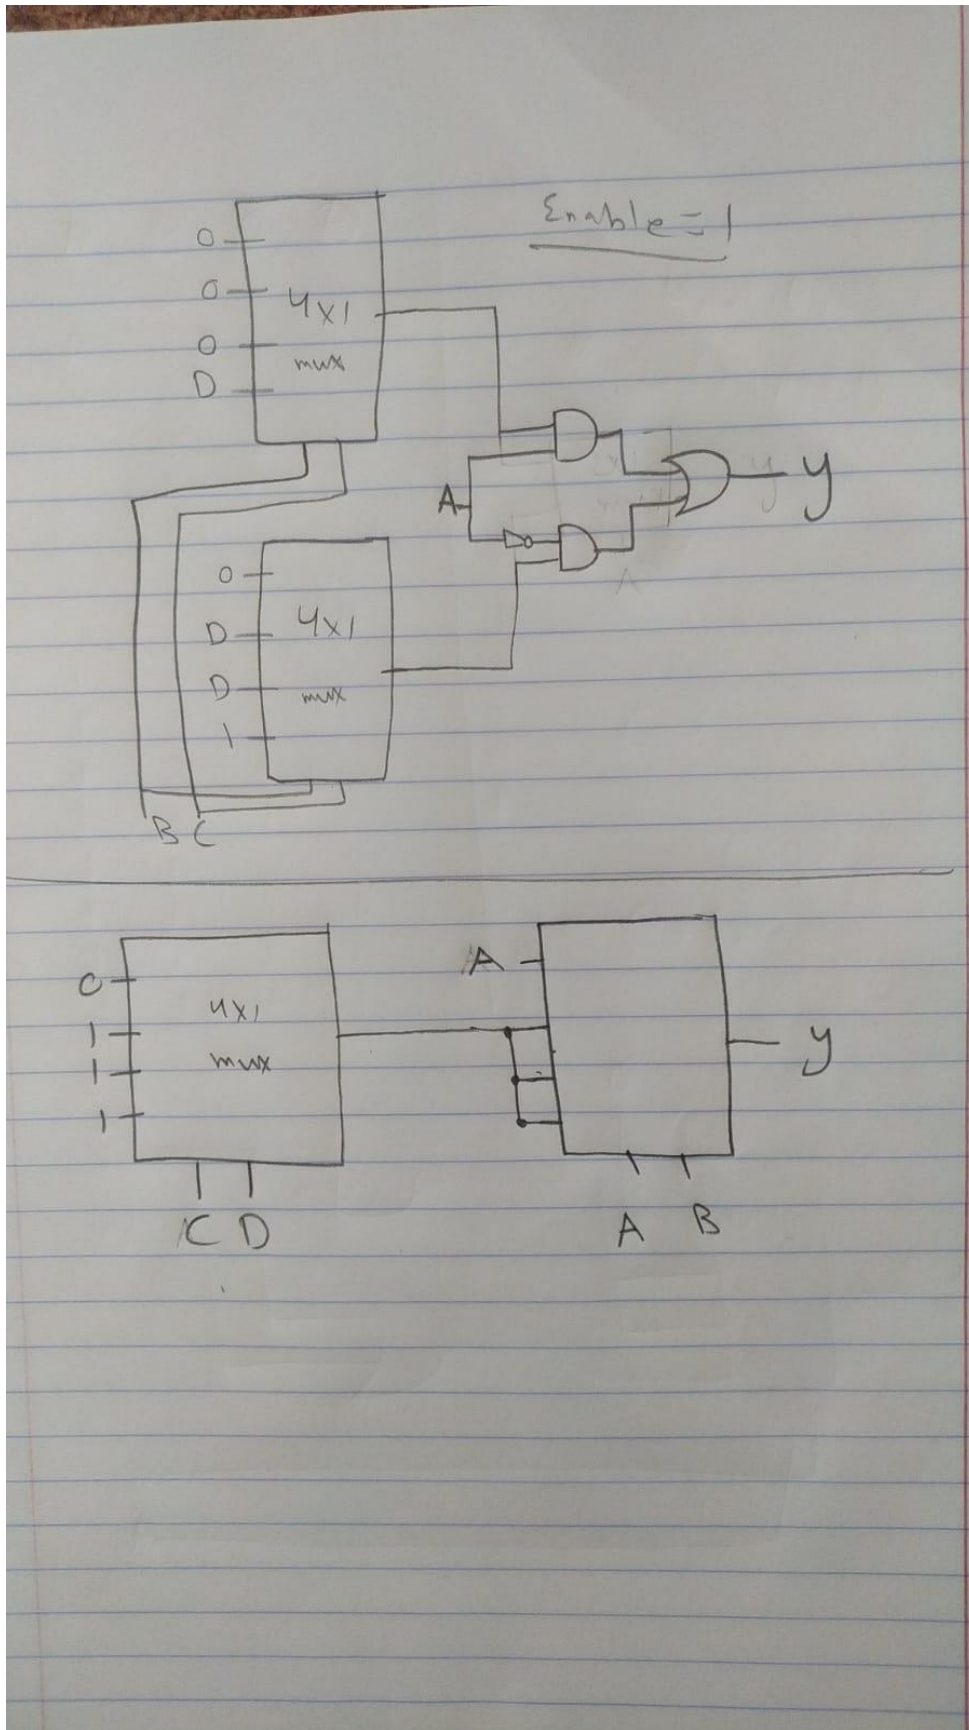 Enable = 1
0
0
0
D
4x1
mux
A
y
0
D
D
1
4x1
mux
B C
0
1
1
1
4x1
mux
C D
A
y
A B